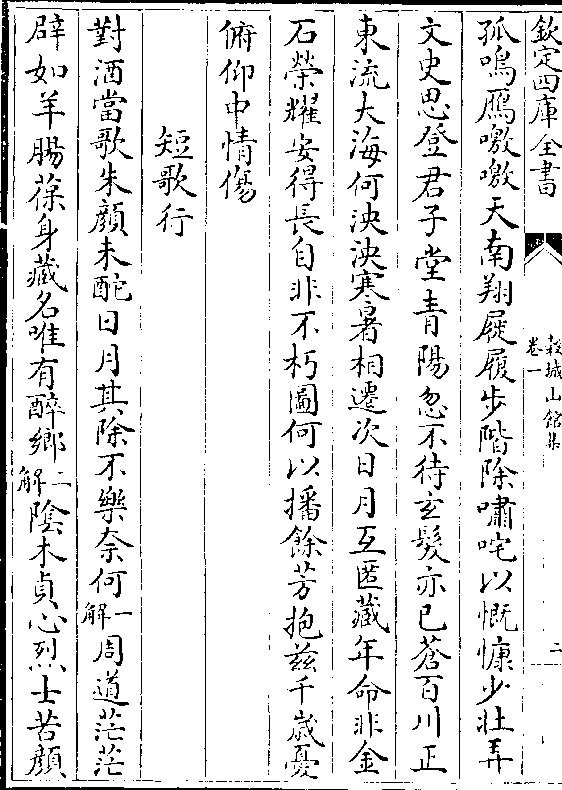 欽定四庫全書
穀城山館集
卷一
二
孤鳴鴈噭噭天南翔屣履步階除嘯咤以慨慷少壯弄
文史思登君子堂青陽忽不待玄髮亦已蒼百川正
東流大海何泱泱寒暑相遷次日月互匿藏年命非金
石榮耀安得長自非不朽圖何以播餘芳抱兹千歲憂
俯仰中情傷
短歌行
對酒當歌朱顔未酡日月其除不樂奈何一解周道茫茫
辟如羊腸葆身藏名唯有醉鄉二解陰木貞心烈士苦顔